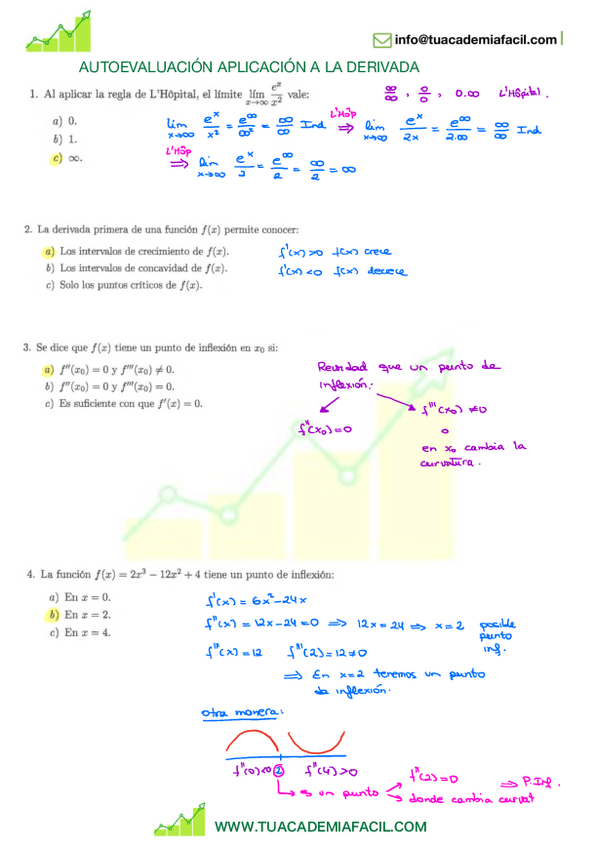 info@tuacademiafacil.com
AUTOEVALUACIÓN APLICACIÓN A LA DERIVADA
1. Al aplicar la regla de L'Hôpital, el límite lím x→∞ e^x/x² vale:
∞/∞ , 0/0 , 0.∞ L'Hôpital.
a) 0.
b) 1.
c) ∞.
lim x→∞ e^x/x² = e^∞/∞² = ∞/∞ Ind L'Hôp ⇒ lim x→∞ e^x/2x = e^∞/2.∞ = ∞/∞ Ind
L'Hôp ⇒ lim x→∞ e^x/2 = e^∞/2 = ∞/2 = ∞
2. La derivada primera de una función f(x) permite conocer:
a) Los intervalos de crecimiento de f(x).
f'(x) > 0 f(x) crece
b) Los intervalos de concavidad de f(x).
f'(x) < 0 f(x) decrece
c) Solo los puntos críticos de f(x).
3. Se dice que f(x) tiene un punto de inflexión en x₀ si:
a) f''(x₀) = 0 y f'''(x₀) ≠ 0.
b) f''(x₀) = 0 y f'''(x₀) = 0.
c) Es suficiente con que f'(x) = 0.
Recordad que un punto de
inflexión:
f''(x₀) = 0
f'''(x₀) ≠ 0
o
en x₀ cambia la
curvatura.
4. La función f(x) = 2x³ − 12x² + 4 tiene un punto de inflexión:
a) En x = 0.
b) En x = 2.
c) En x = 4.
f'(x) = 6x² − 24x
f''(x) = 12x − 24 = 0 ⇒ 12x = 24 ⇒ x = 2 posible
punto
inf.
f'''(x) = 12 f'''(2) = 12 ≠ 0
⇒ En x=2 tenemos un punto
de inflexión.
otra manera:
f''(0)<0 2 f''(4)>0
es un punto f''(2)=0 ⇒ P.Inf.
donde cambia curvat
WWW.TUACADEMIAFACIL.COM